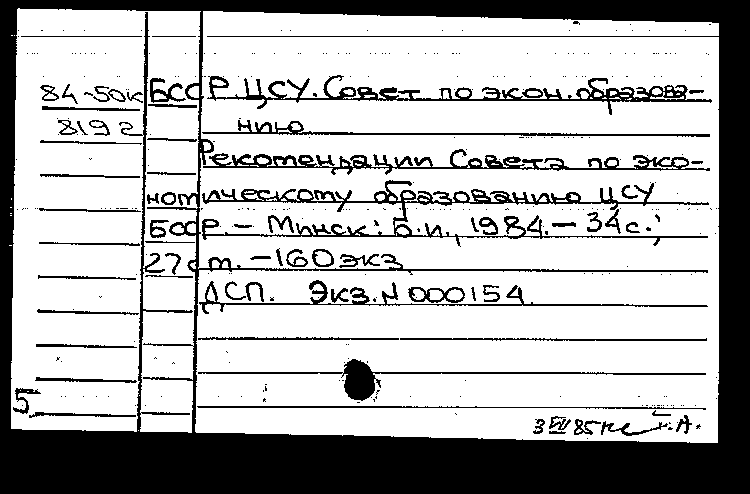 84-50к БССР. ЦСУ. Совет по экон. образова-
8192 нию
Рекомендации Совета по эко-
номическому образованию ЦСУ
БССР. - Минск: Б.и., 1984. - 34с.;
27см. - 160экз.
ДСП. Экз. № 000154.
5
3 VII 85